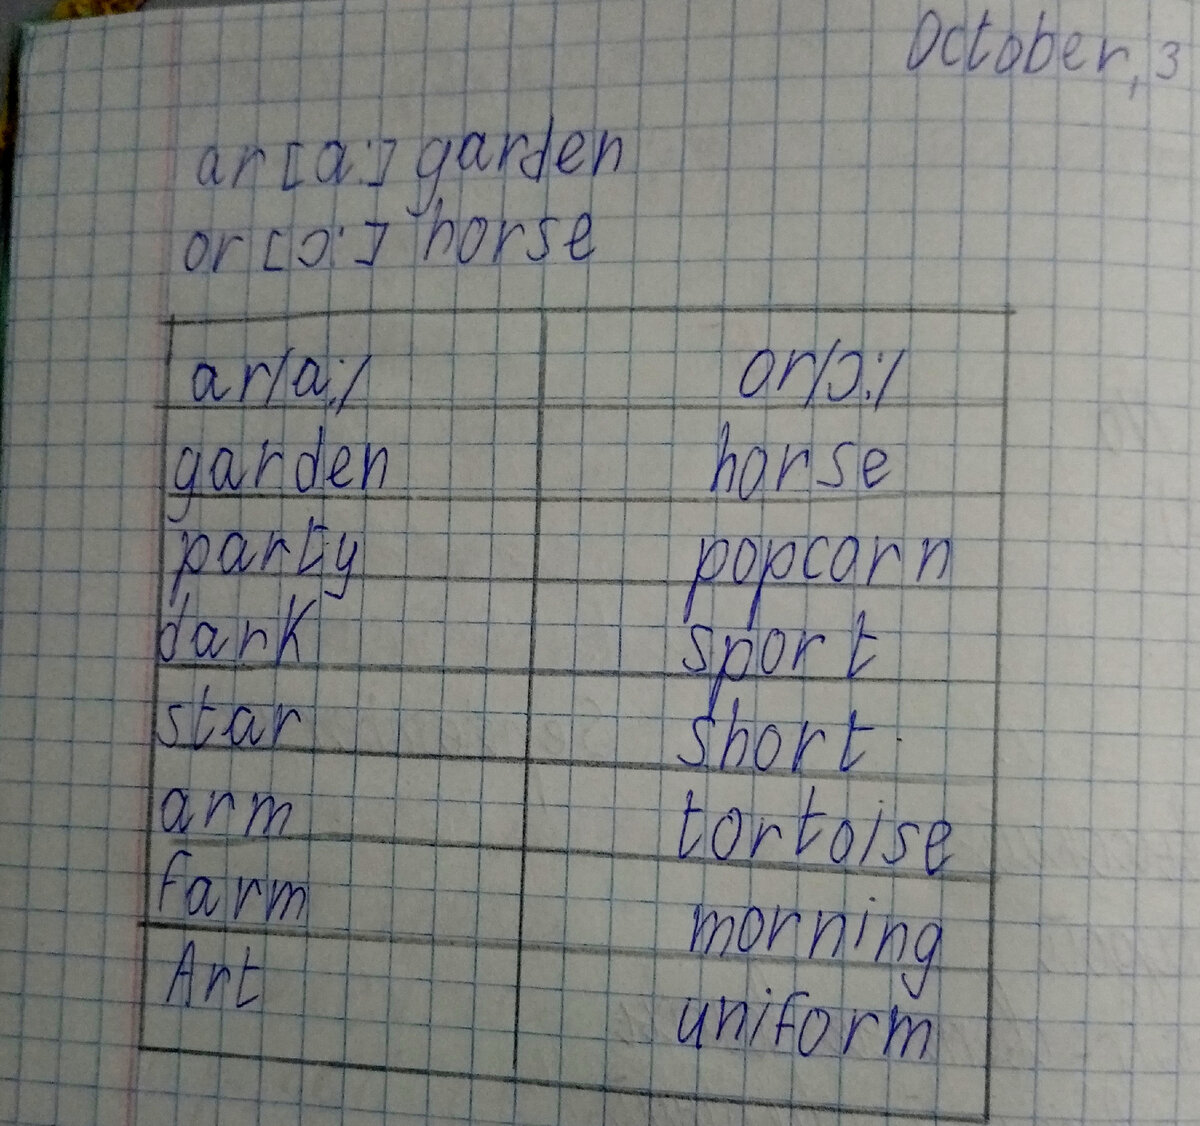 October, 3
ar [a:] garden
or [ɔ:] horse
ar/a:/ or/ɔ:/
garden horse
party popcorn
dark sport
star short
arm tortoise
farm morning
Art uniform